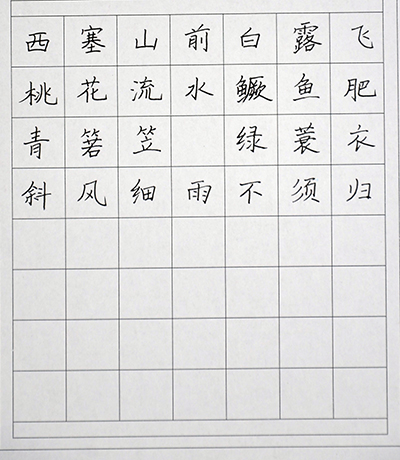 西塞山前白露飞
桃花流水鳜鱼肥
青箬笠 绿蓑衣
斜风细雨不须归